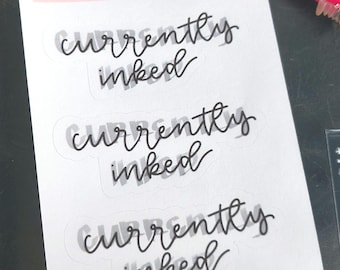 currently
inked
currently
inked
currently
inked